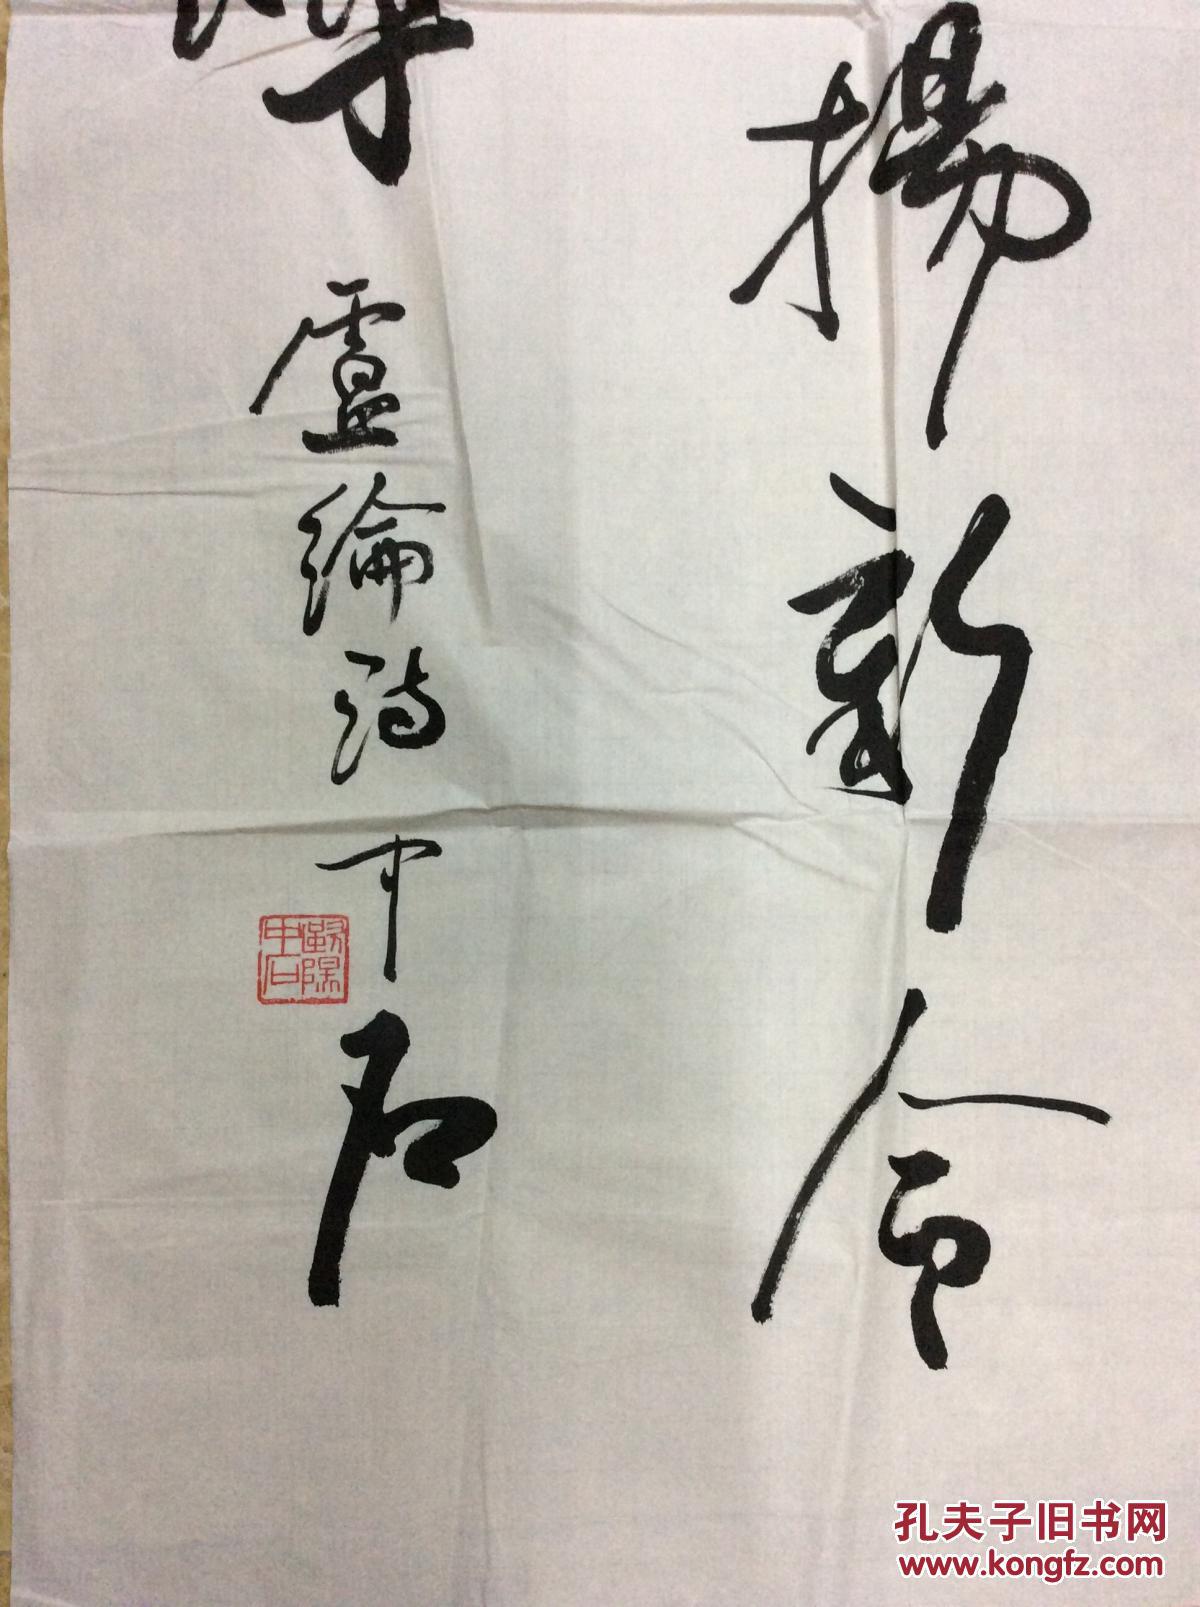 揚新令
呼
盧綸詩 中石
歐陽中石
孔夫子旧书网
www.kongfz.com